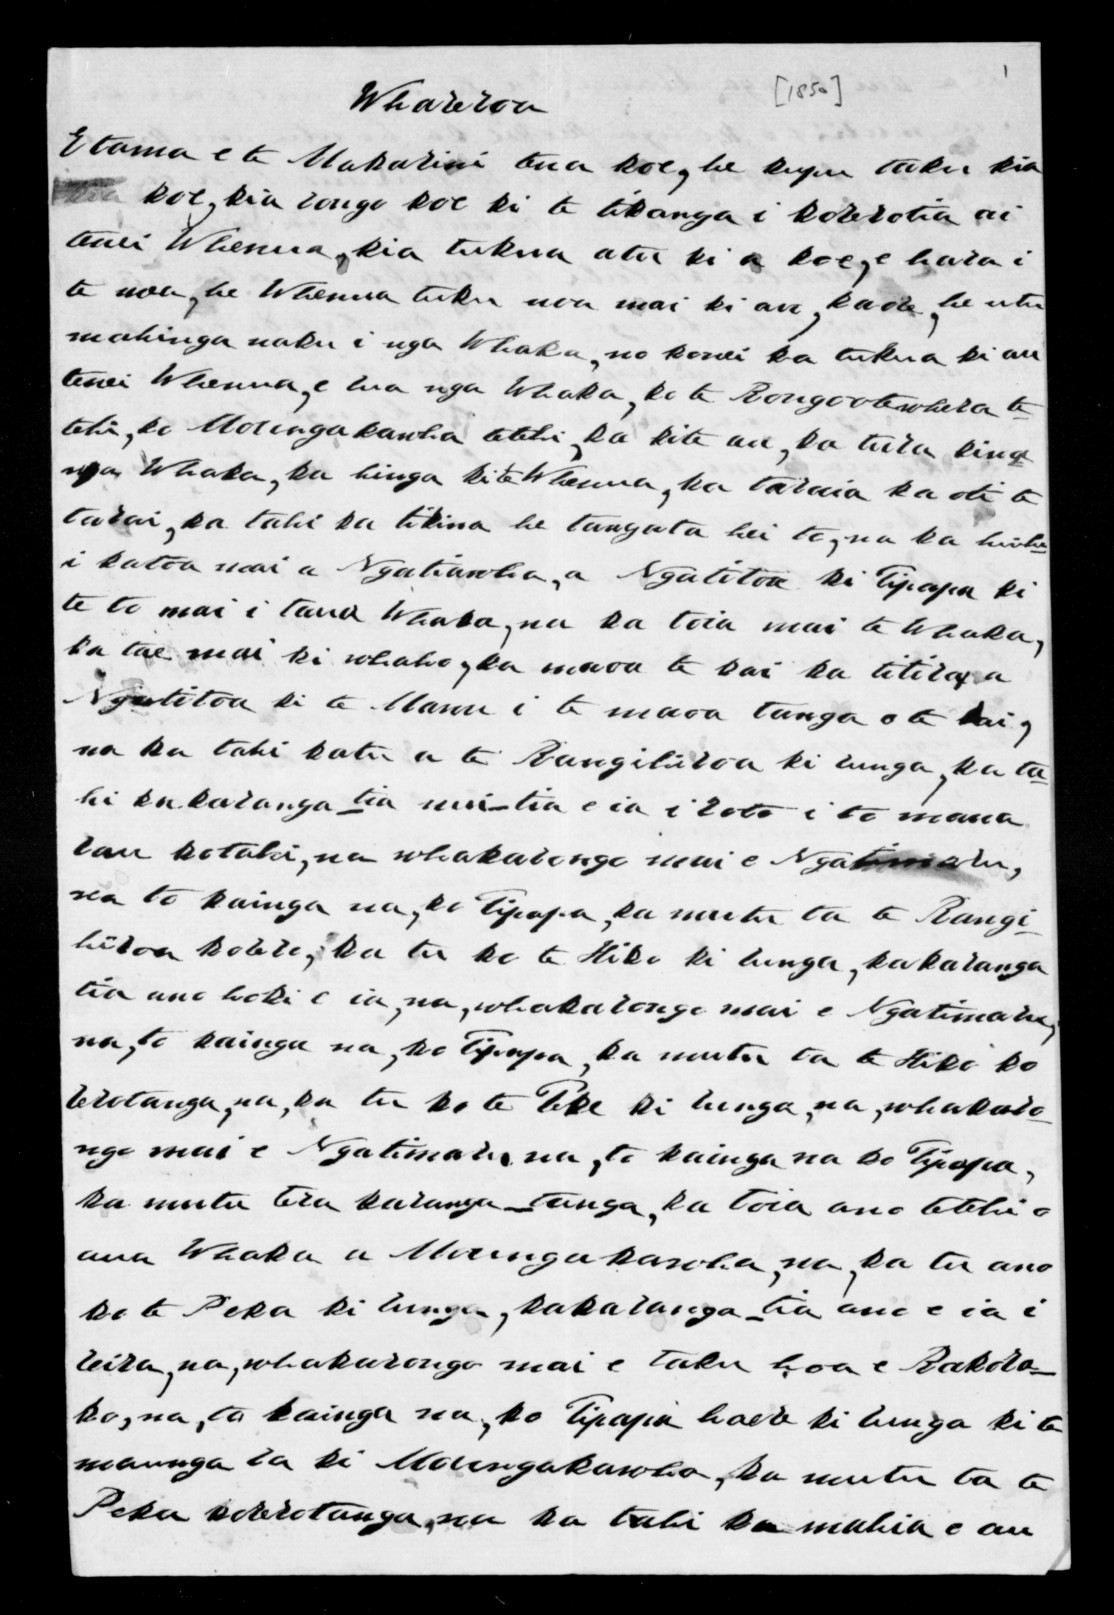 1
Whareroa [1850]
E tama e te Makarini tena koe, he kupu taku kia
koe, kia rongo koe ki te tikanga i korerotia ai
tenei Whenua, kia tukua atu ki a koe, e hara i
te noa, he Whenua tuku noa mai ki au, kaore, he utu
mahinga naku i nga Whaka, no konei ka tukua ki au
tenei Whenua, e rua nga Whaka, ko te Rongootewhera te
tehi, ko Moungakawha tetehi, ka kite au, ka turakina
nga Whaka, ka hinga ki te Whenua, ka taraia ka oti te
tarai, ka tahi ka tikina he tangata hei to, na ka huihu
i katoa mai a Ngatiawha, a Ngatitoa ki Tipapa ki
te to mai i taua Whaka, na ka toia mai te Whaka,
ka tae mai ki whaho, ka maoa te kai ka titira a
Ngatitoa ki te Manu i te maoa tanga o te kai,
na ka tahi ka tu a te Rangihiiroa ki runga, ka ta-
hi ka karanga-tia mai-tia e ia i roto i to mana
rau kotahi, na whakarongo mai e Ngatimaru,
na to kainga na, ko Tipapa, ka mutu ta te Rangi-
hiiroa korero, ka tu ko te Hiko ki runga, ka karanga
tia ano hoki e ia, na, whakarongo mai e Ngatimaru,
na, to kainga na, ko Tipapa, ka mutu ta te Hiko ko
rerotanga, na, ka tu ko te Peke ki runga, na, whakaro-
ngo mai e Ngatimaru, na, to kainga na ko Tipapa,
ka mutu tera karanga-tanga, ka toia ano tetehi o
aua Whaka a Moungakawha, na, ka tu ano
ko te Peka ki runga, ka karanga-tia ano e ia i
reira, na, whakarongo mai e taku hoa e Rakora-
ko, na, to kainga na, ko Tipapa haere ki runga ki te
maunga ra ki Moungakawha, ka mutu ta te
Peka korerotanga, na ka tahi ka mahia e au